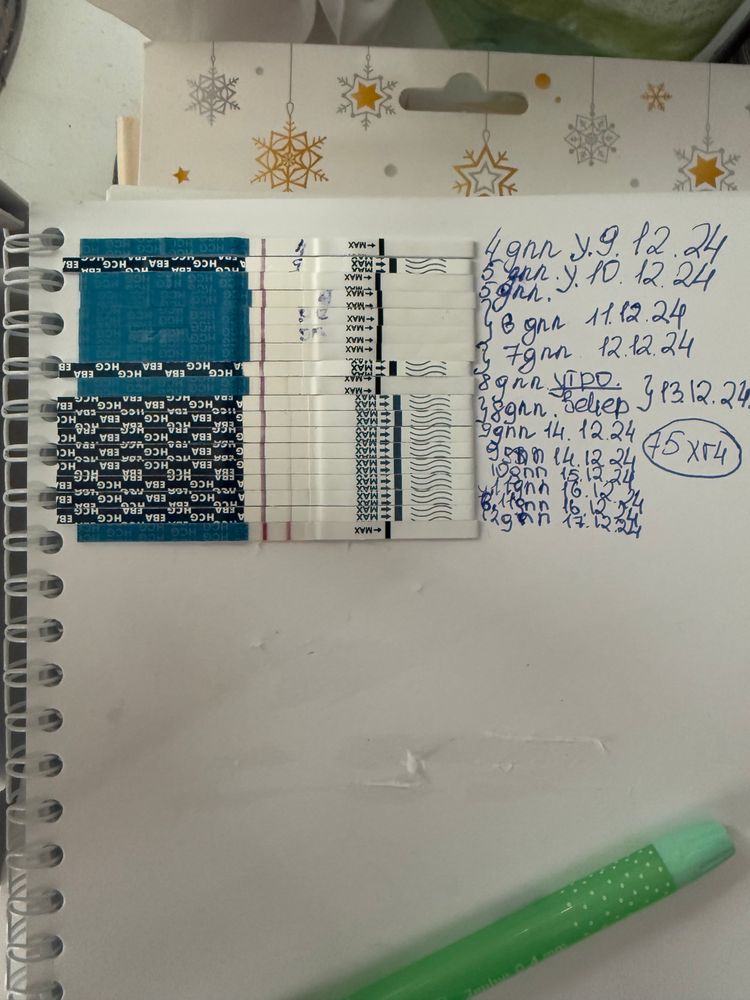 HCG HCG HCG
MAX
4 дпп у. 9.12.24
EBA HCG EBA HCG EBA HCG
5 дпп. у. 10.12.24
MAX
5 дпп.
MAX
} 6 дпп 11.12.24
MAX
7 дпп 12.12.24
EBA HCG EBA HCG EBA HCG
MAX
8 дпп утро. } 13.12.24
8 дпп. вечер
9 дпп 14.12.24
75 хгч
14.12.24
15.12.24
11 дпп 16.12.24
11 дпп 16.12.24
12 дпп 17.12.24
MAX